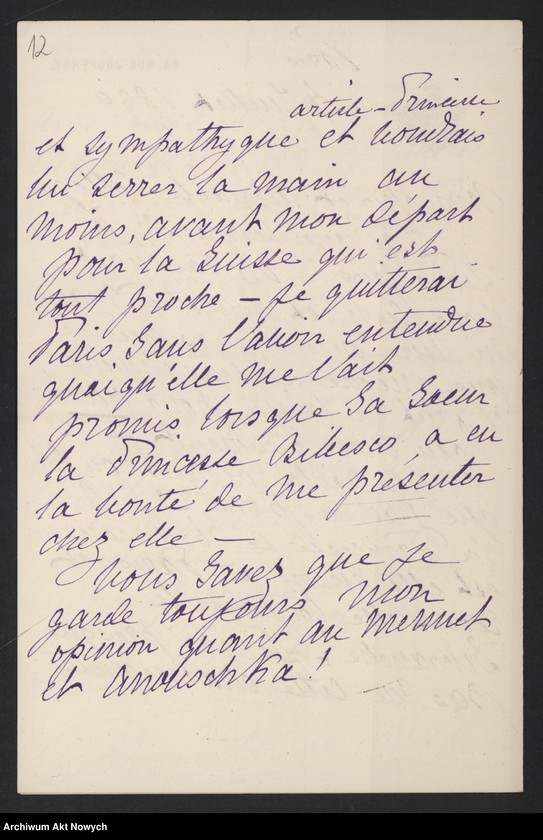 12
article - Princesse
et sympathyque et voudrais
lui serrer la main au
moins, avant mon départ
pour la Suisse qui est
tout proche - je quitterai
Paris sans l'avoir entendue
quoiqu'elle me l'ait
promis lorsque sa soeur
la Princesse Bibesco, a eu
la bonté de me présenter
chez elle -
Vous savez que je
garde toujours mon
opinion quant au Menuet
et Anouschka!
Archiwum Akt Nowych